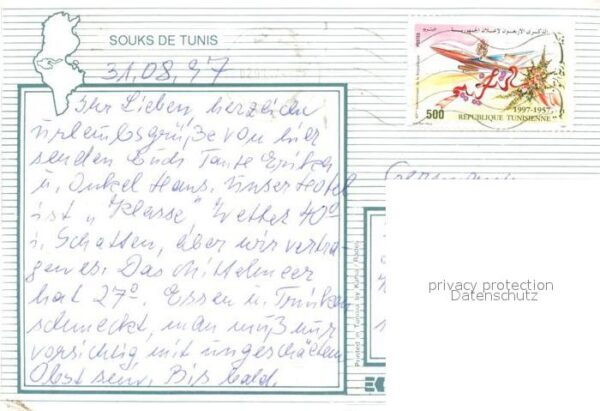 SOUKS DE TUNIS
31.08.97
Ihr Lieben, herzlichen
Urlaubsgrüße von hier
senden Euch Tante Erika
u. Onkel Hans. Unser Hotel
ist „Klasse" Wetter 40°
i. Schatten, aber wir vertra-
gen es. Das Mittelmeer
hat 27°. Essen u. Trinken
schmeckt, man muß nur
vorsichtig mit ungeschältem
Obst sein. Bis bald.
500
1997-1957
RÉPUBLIQUE TUNISIENNE
privacy protection
Datenschutz